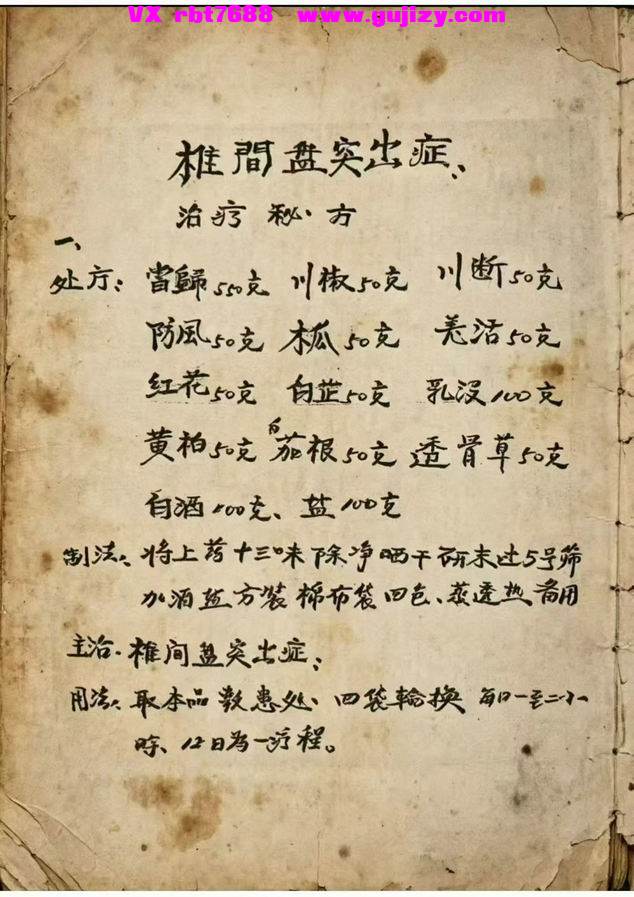 VX rbt7688 www.gujizy.com
椎間盘突出症:
治疗秘方
一、
处方: 當歸550克 川椒50克 川断50克
防風50克 木瓜50克 羌活50克
红花50克 白芷50克 乳没100克
黄柏50克 白茄根50克 透骨草50克
白酒100克、盐100克
制法: 将上药十三味除净晒干研末过5号筛
加酒盐方装棉布袋四包、蒸透热备用
主治. 椎间盘突出症;
用法: 取本品敷患处、四袋輪换 每日一至二小
時、12日为一疗程。